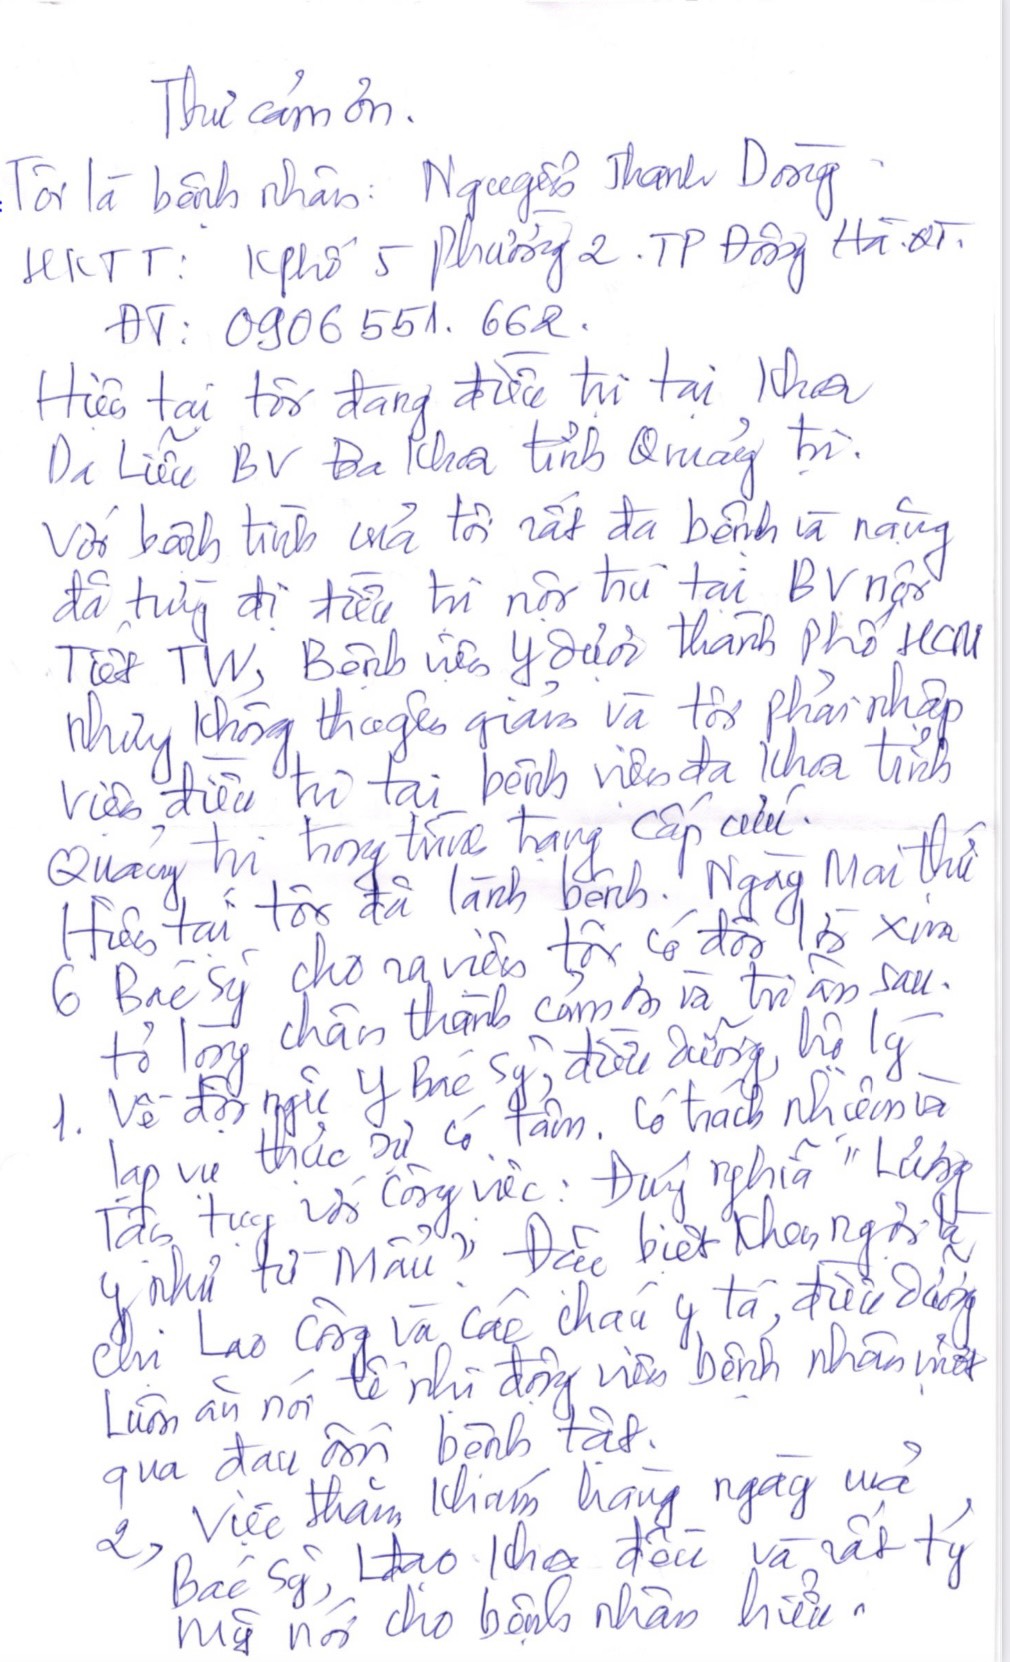 Thư cảm ơn.
Tôi là bệnh nhân: Nguyễn Thanh Dong
HKTT: Kphố 5 Phường 2. TP Đông Hà. QT.
ĐT: 0906 551. 662.
Hiện tại tôi đang điều trị tại Khoa
Da Liễu BV Đa Khoa tỉnh Quảng trị.
Với bệnh tình của tôi rất đa bệnh và nặng
đã từng đi điều trị nội trú tại BV nội
Tiết TW, Bệnh viện Y dược thành phố HCM
nhưng không thuyên giảm và tôi phải nhập
viện điều trị tại bệnh viện đa khoa tỉnh
Quảng trị trong tình trạng cấp cứu.
Hiện tại tôi đã lành bệnh. Ngày Mai thứ
6 Bác sỹ cho ra viện tôi có đôi lời xin
tỏ lòng chân thành cảm ơn và tri ân sau.
1. Về đội ngũ y Bác sỹ, điều dưỡng, hộ lý
thực sự có tâm. Có trách nhiệm và
Tận tụy với công việc: Đúng nghĩa "Lương
y như từ Mẫu". Đặc biệt khen ngợi là
chị Lao công và các cháu y tá, điều dưỡng
Luôn ăn nói tế nhị động viên bệnh nhân vượt
qua đau ốm bệnh tật.
2, Việc thăm khám hàng ngày của
Bác sỹ, Lđạo khoa đều và rất tỷ
mỹ nói cho bệnh nhân hiểu.